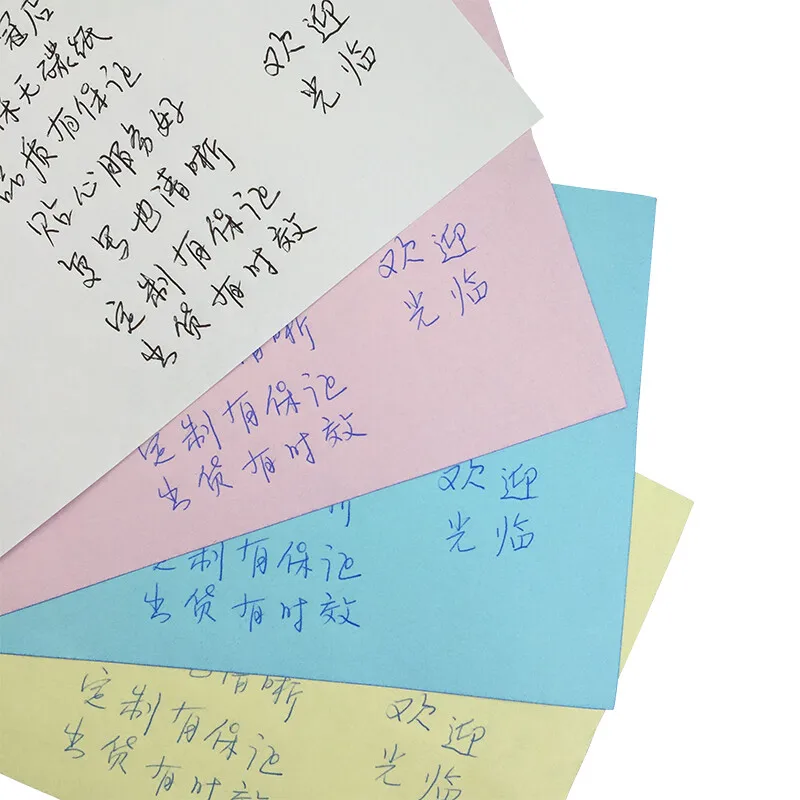 冠店
保无碳纸
品质有保证
贴心服务好
复写也清晰
定制有保证
出货有时效
欢迎
光临
清晰
定制有保证
出货有时效
欢迎
光临
定制有保证
出货有时效
欢迎
光临
也清晰
定制有保证
出货有时效
欢迎
光临